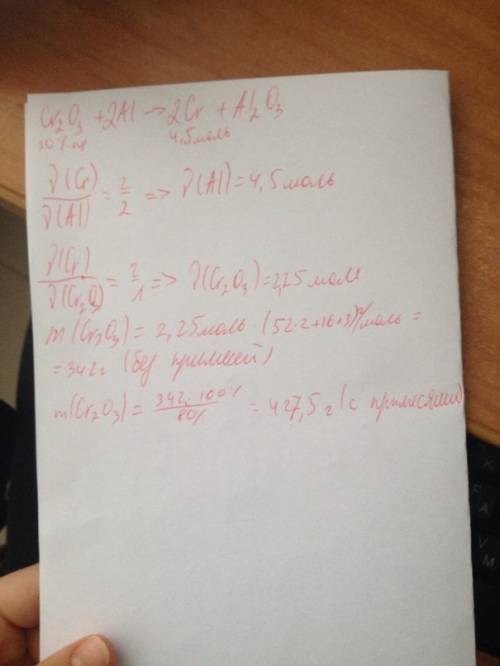 Cr₂O₃ + 2Al → 2Cr + Al₂O₃
20% пр 4,5 моль
ν(Cr)/ν(Al) = 2/2 => ν(Al) = 4,5 моль
ν(Cr)/ν(Cr₂O₃) = 2/1 => ν(Cr₂O₃) = 2,25 моль
m(Cr₂O₃) = 2,25 моль · (52·2+16·3) г/моль =
= 342 г (без примесей)
m(Cr₂O₃) = 342·100%/80% = 427,5 г (с примесями)